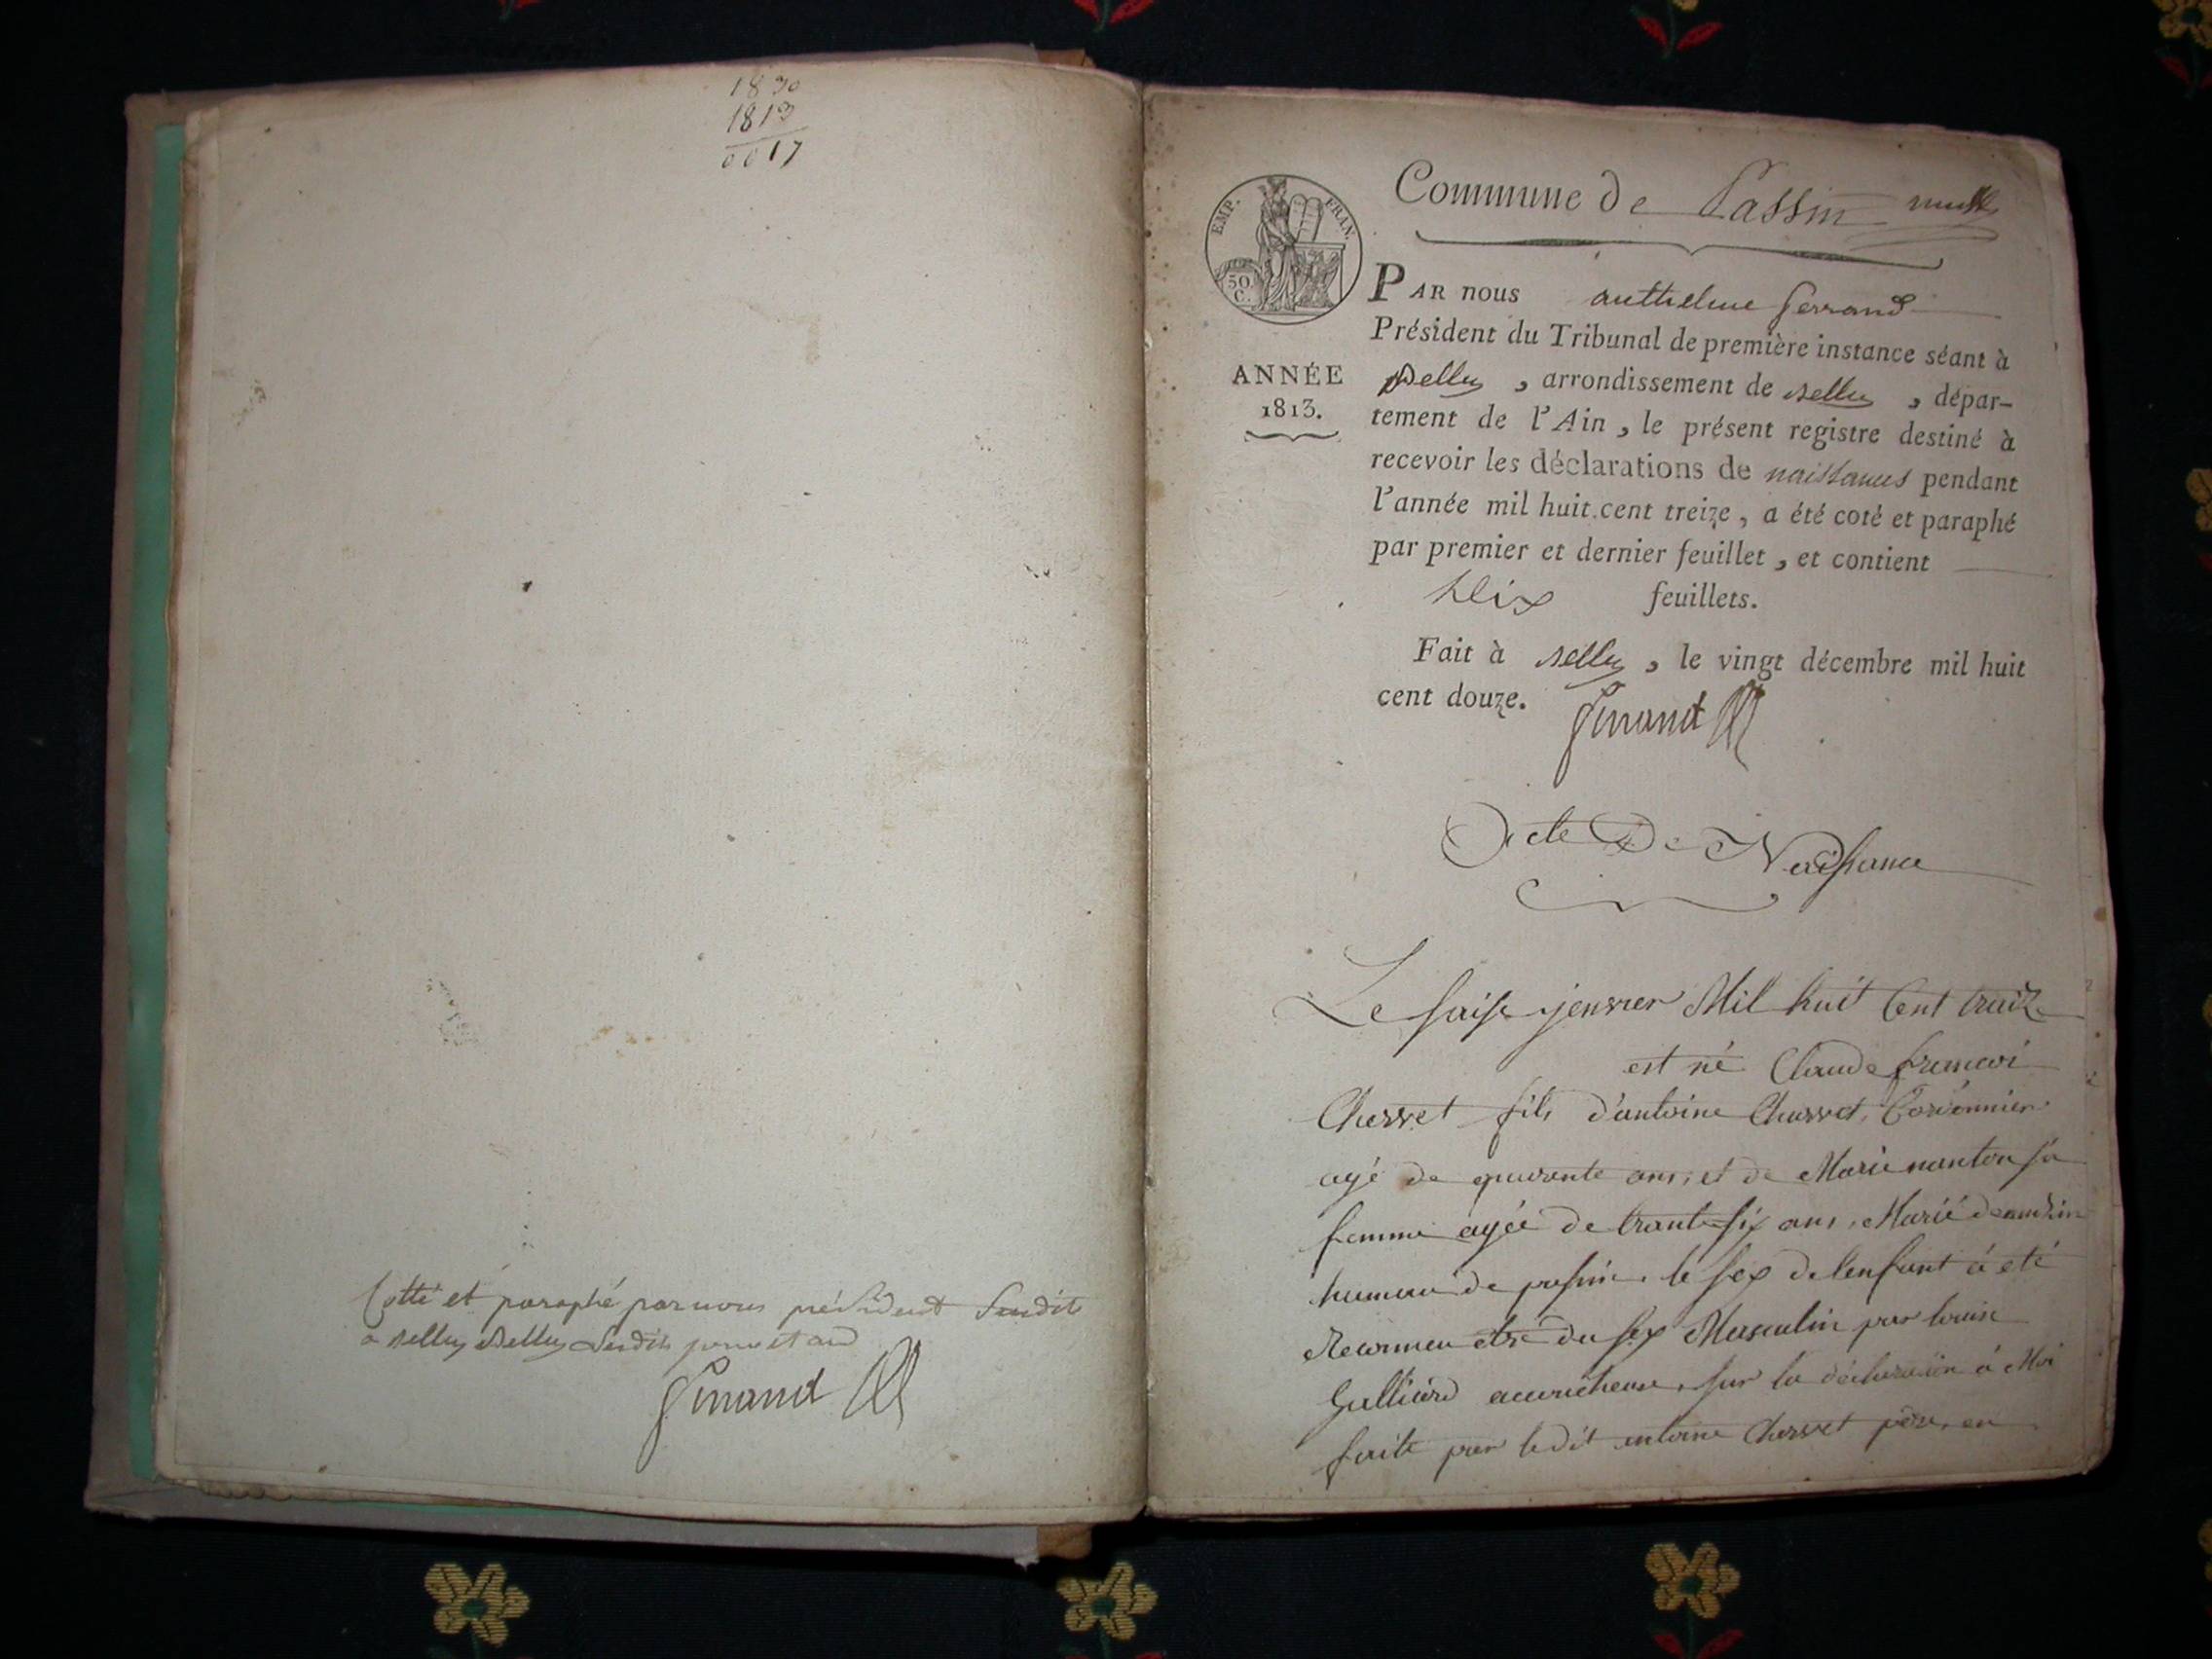 1830
1813
0017
Cotté et paraphé par nous président susdit
a Belley Belley susdits jour et an
Ferrand
Commune de Passin
EMP. FRAN.
50 C.
PAR nous anthelme ferrand
Président du Tribunal de première instance séant à
ANNÉE
1813.
Belley, arrondissement de Belley, dépar-
tement de l'Ain, le présent registre destiné à
recevoir les déclarations de naissances pendant
l'année mil huit cent treize, a été coté et paraphé
par premier et dernier feuillet, et contient
dix feuillets.
Fait à Belley, le vingt décembre mil huit
cent douze.
Ferrand
Acte De Naissance
Le saise jenvier Mil huit Cent traize
est né Claude francoi
Chervet fils d'antoine Charvet, Cordonnier
agé de quarante ans, et de Marie nanton sa
femme agée de trante six ans, Marié
de passin. le sex de lenfant à eté
Reconneu etre du sex Masculin par louise
Gulliard accoucheuse, sur la déclaration à Moi
faite par ledit antoine Chervet père, en